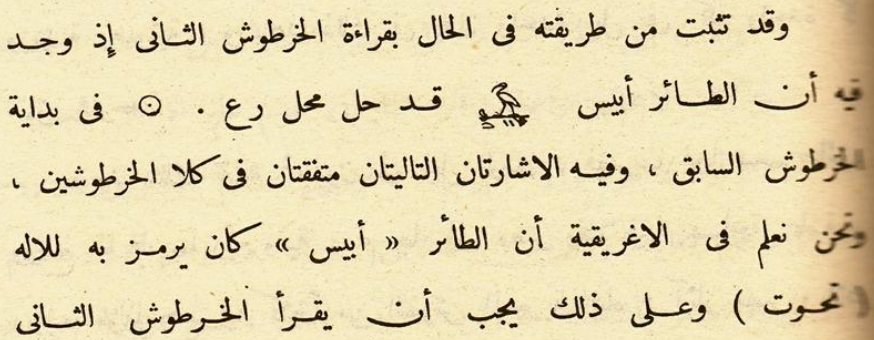 وقد تثبت من طريقته فى الحال بقراءة الخرطوش الثانى إذ وجد
فيه أن الطائر أبيس قد حل محل رع . ☉ فى بداية
الخرطوش السابق ، وفيه الاشارتان التاليتان متفقتان فى كلا الخرطوشين ،
ونحن نعلم فى الاغريقية أن الطائر « أبيس » كان يرمز به للاله
( تحوت ) وعلى ذلك يجب أن يقرأ الخرطوش الثانى